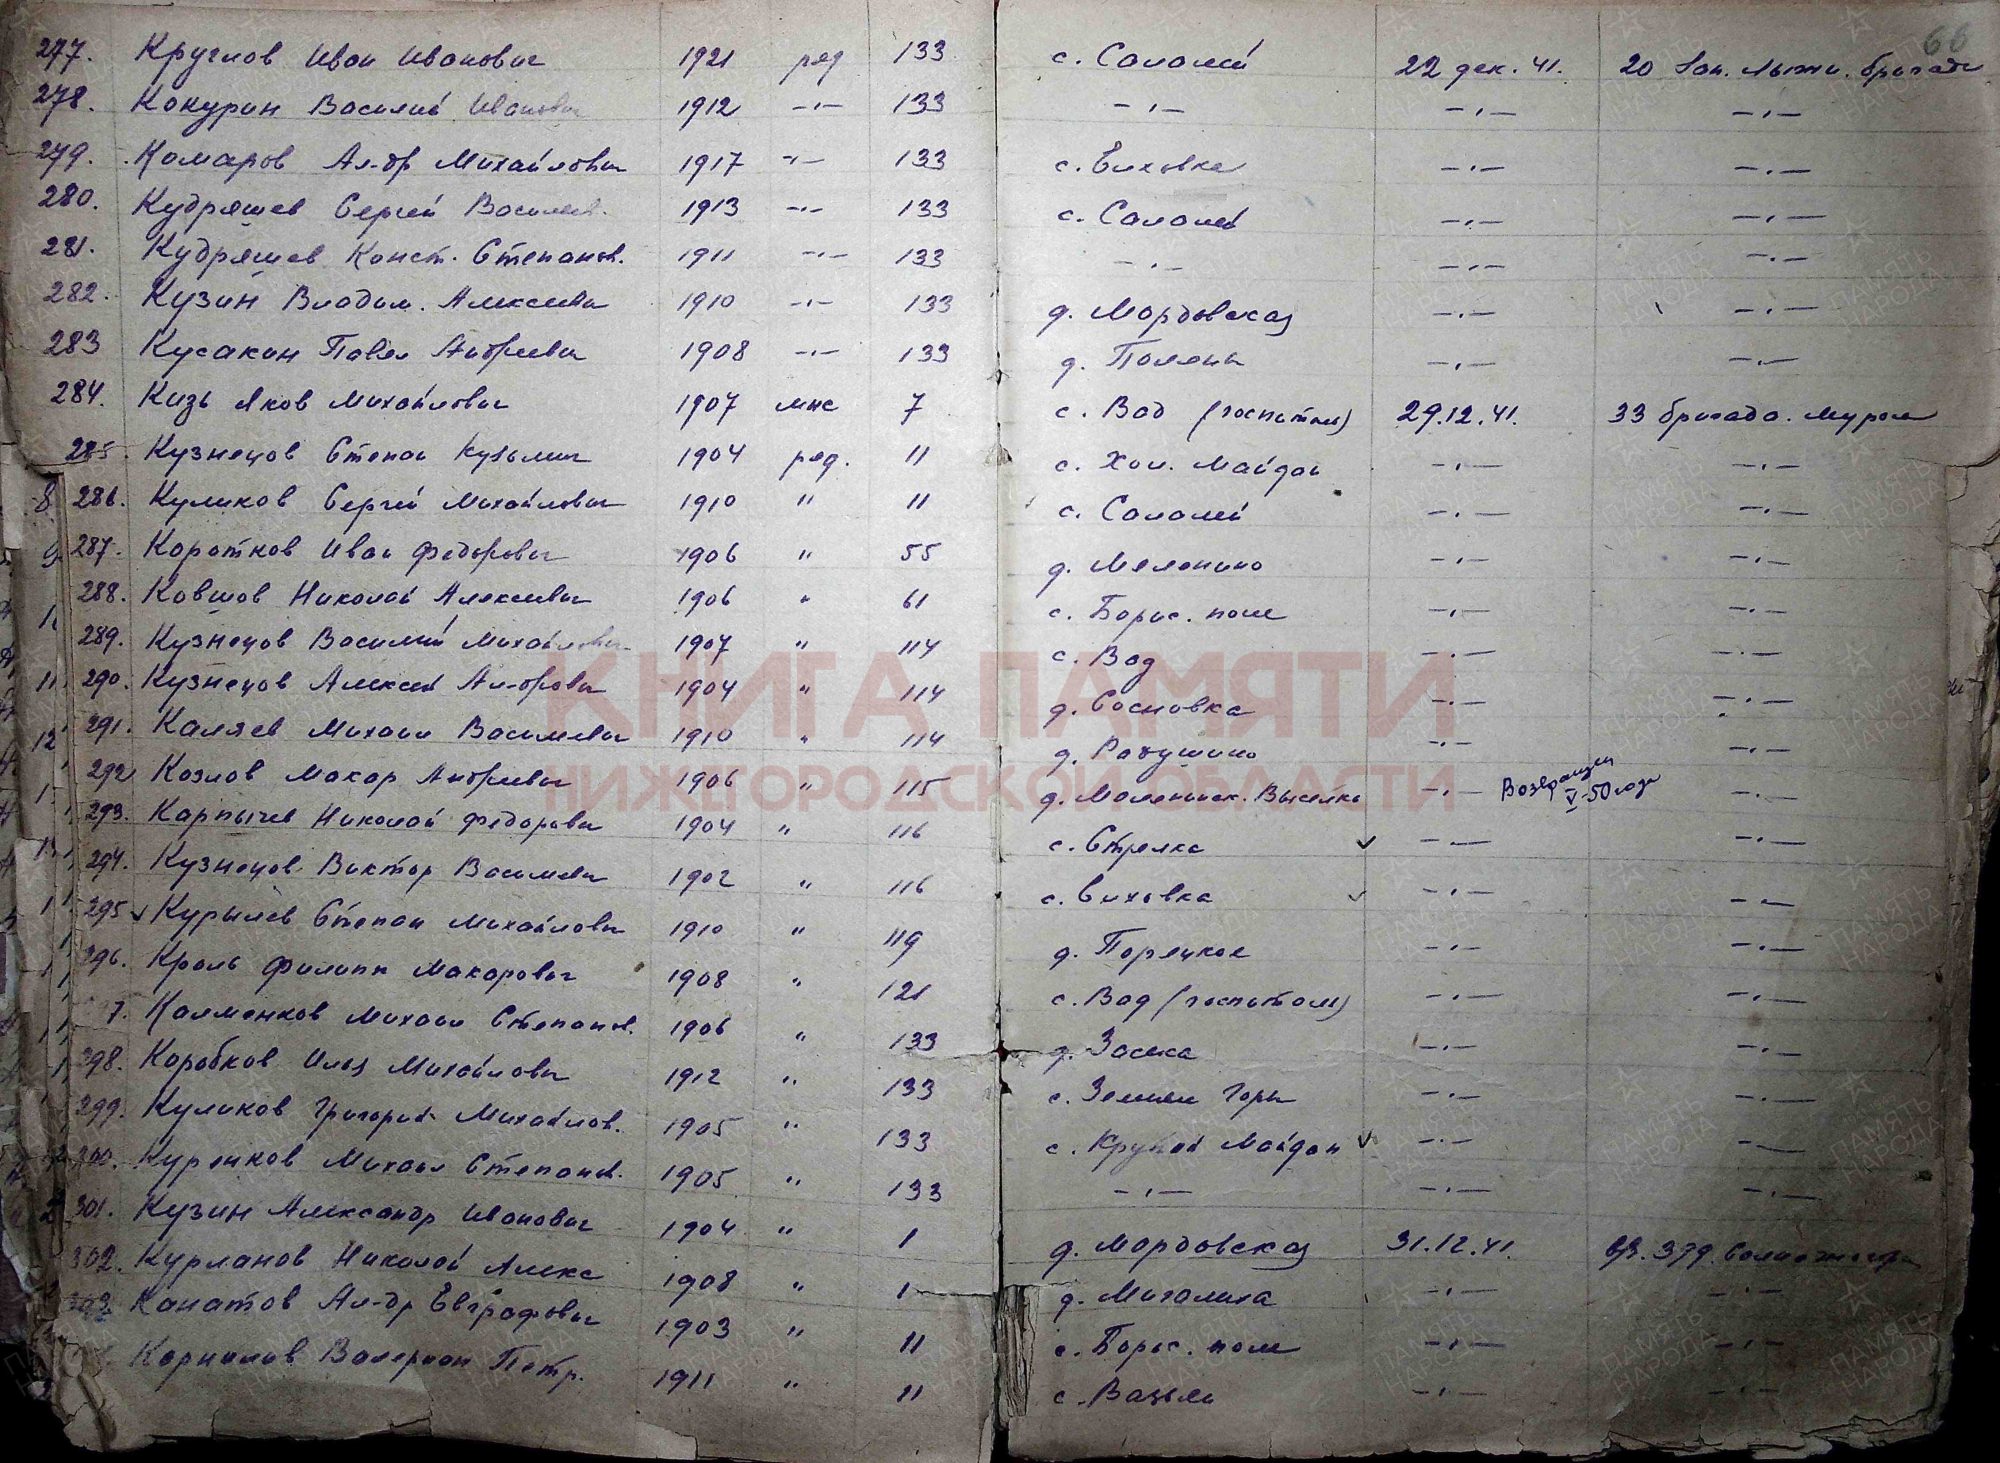 66
277. Круглов Иван Иванович 1921 ряд 133 с. Салалей 22 дек. 41. 20 Зап. лыжн. бригада
278. Кокурин Василий Иванович 1912 -"- 133 -"- -"- -"-
279. Комаров Ал-др Михайлович 1917 -"- 133 с. Елховка -"- -"-
280. Кудряшев Сергей Василев. 1913 -"- 133 с. Салалей -"- -"-
281. Кудряшев Конст. Степанов. 1911 -"- 133 -"- -"- -"-
282. Кузин Владим. Алексеевич 1910 -"- 133 д. Мордовская -"- -"-
283 Кусакин Павел Андреевич 1908 -"- 133 д. Поляны -"- -"-
284. Кизь Яков Михайлович 1907 мнс 7 с. Вад (госпиталь) 29.12.41. 33 бригада. Муром
285. Кузнецов Степан Кузьмич 1904 ряд. 11 с. Хол. Майдан -"- -"-
286. Куликов Сергей Михайлович 1910 " 11 с. Салалей -"- -"-
287. Коротков Иван Федорович 1906 " 55 д. Меленино -"- -"-
288. Ковшов Николай Алексеевич 1906 " 61 с. Борис. поле -"- -"-
289. Кузнецов Василий Михайлович 1907 " 114 с. Вад -"- -"-
290. Кузнецов Алексей Ал-дрович 1904 " 114 д. Сосновка -"- -"-
291. Каляев Михаил Василевич 1910 " 114 д. Рахушино -"- -"-
292 Козлов Макар Андреевич 1906 " 115 д. Выселки -"- Возвращен V-50 года -"-
293. Карпычев Николай Федорович 1904 " 116 с. Стрелка -"- -"-
294. Кузнецов Виктор Василевич 1902 " 116 с. Елховка -"- -"-
295 Курылев Степан Михайлович 1910 " 119 д. Порецкое -"- -"-
296. Кроль Филипп Макарович 1908 " 121 с. Вад (госпиталь) -"- -"-
7. Калменков Михаил Степанов. 1906 " 133 д. Засека -"- -"-
298. Коробков Илья Михайлович 1912 " 133 с. Земляи Горы -"- -"-
299. Куликов Григорий Михайлов. 1905 " 133 с. Крутой Майдан -"- -"-
300. Куренков Михаил Степанов. 1905 " 133 -"- -"- -"-
301. Кузин Александр Иванович 1904 " 1 д. Мордовская 31.12.41. 379.
302. Курланов Николай Алекс 1908 " 1 д. Мигалиха -"- -"-
303. Канатов Ал-др Евграфович 1903 " 11 с. Борис. поле -"- -"-
Корнилов Валериан Петр. 1911 " 11 с. Вазьян -"- -"-
КНИГА ПАМЯТИ
НИЖЕГОРОДСКОЙ ОБЛАСТИ
ПАМЯТЬ НАРОДА